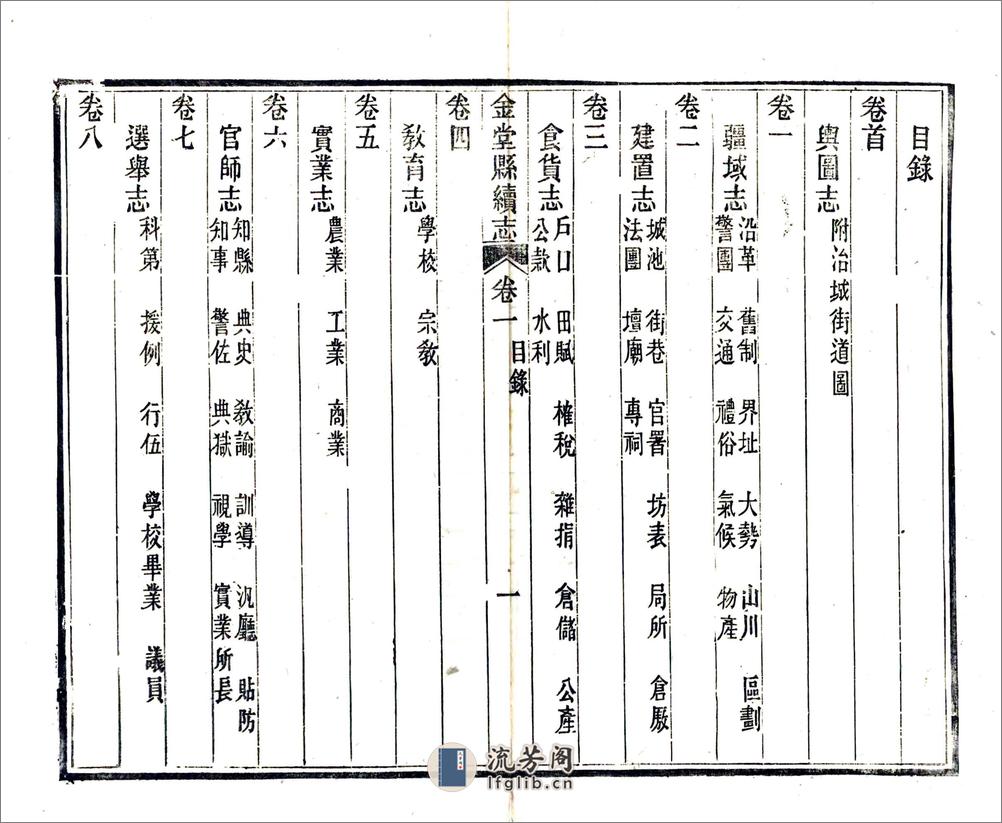 目錄
卷首
輿圖志 附治城街道圖
卷一
疆域志 沿革 舊制 界址 大勢 山川 區劃
警團 交通 禮俗 氣候 物產
卷二
建置志 城池 街巷 官署 坊表 局所 倉厫
法團 壇廟 專祠
卷三
食貨志 戶口 田賦 榷稅 雜捐 倉儲 公產
公款 水利
金堂縣續志 卷一 目錄 一
卷四
敎育志 學校 宗敎
卷五
實業志 農業 工業 商業
卷六
官師志 知縣 典史 敎諭 訓導 汛廳 貼防
知事 警佐 典獄 視學 實業所長
卷七
選舉志 科第 援例 行伍 學校畢業 議員
卷八
流芳阁
lfglib.cn